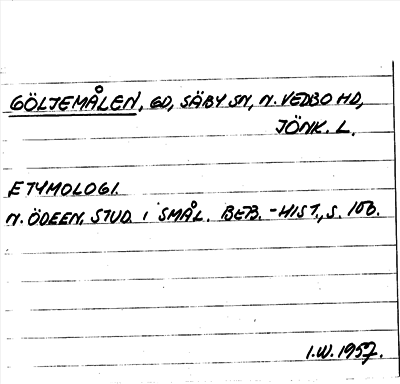 GÖLJEMÅLEN, GD, SÄBY SN, N. VEDBO HD,
JÖNK. L.
ETYMOLOGI.
N. ÖDEEN, STUD. I SMÅL. BEB.-HIST., S. 100.
I.W. 1957.